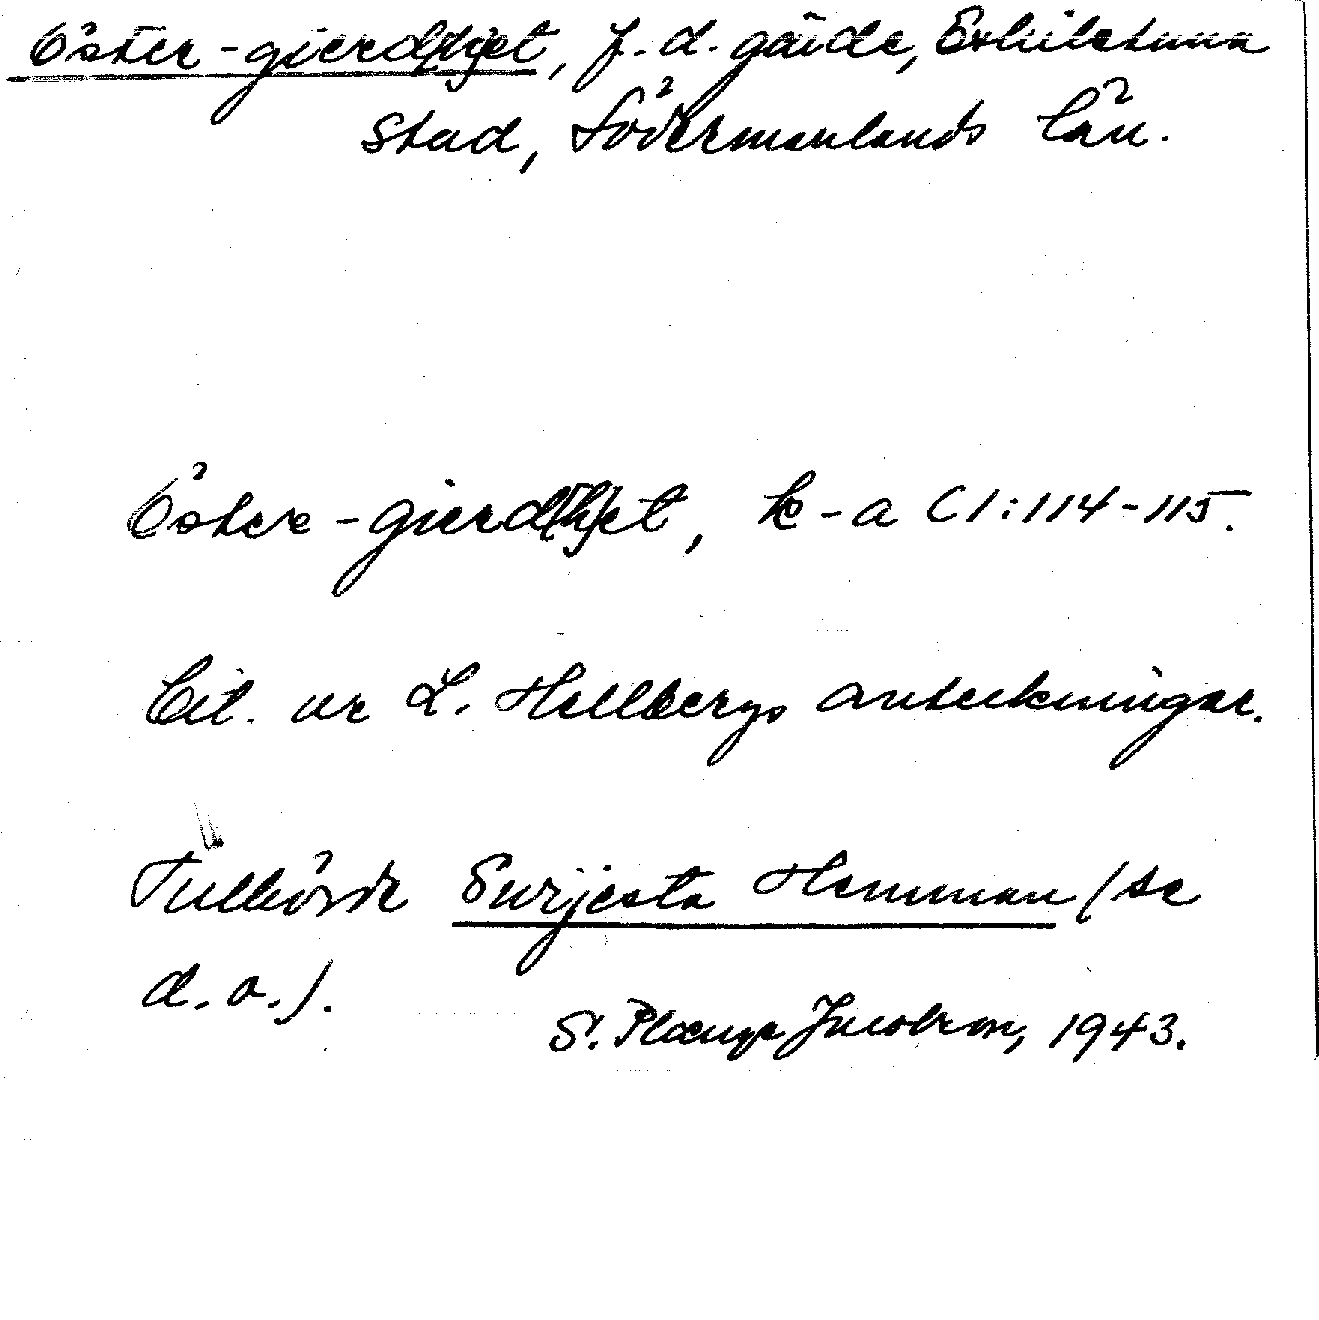 Öster-gierd(h)et, f.d. gärde, Eskilstuna
Stad, Södermanlands län.
Öster-gierd(h)et, k-a C1:114-115.
Cit. ur L. Hellbergs anteckningar.
Tillhörde Surjesta Hemman (se
d.o.).
S. Jacobson, 1943.